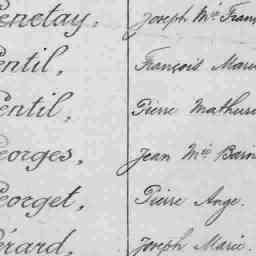 enetay, Joseph Mie Fran
entil, François Marie
entil, Pierre Mathuri
eorges, Jean Mie Barn
eorget, Pierre Ange.
érard, Joseph Marie.